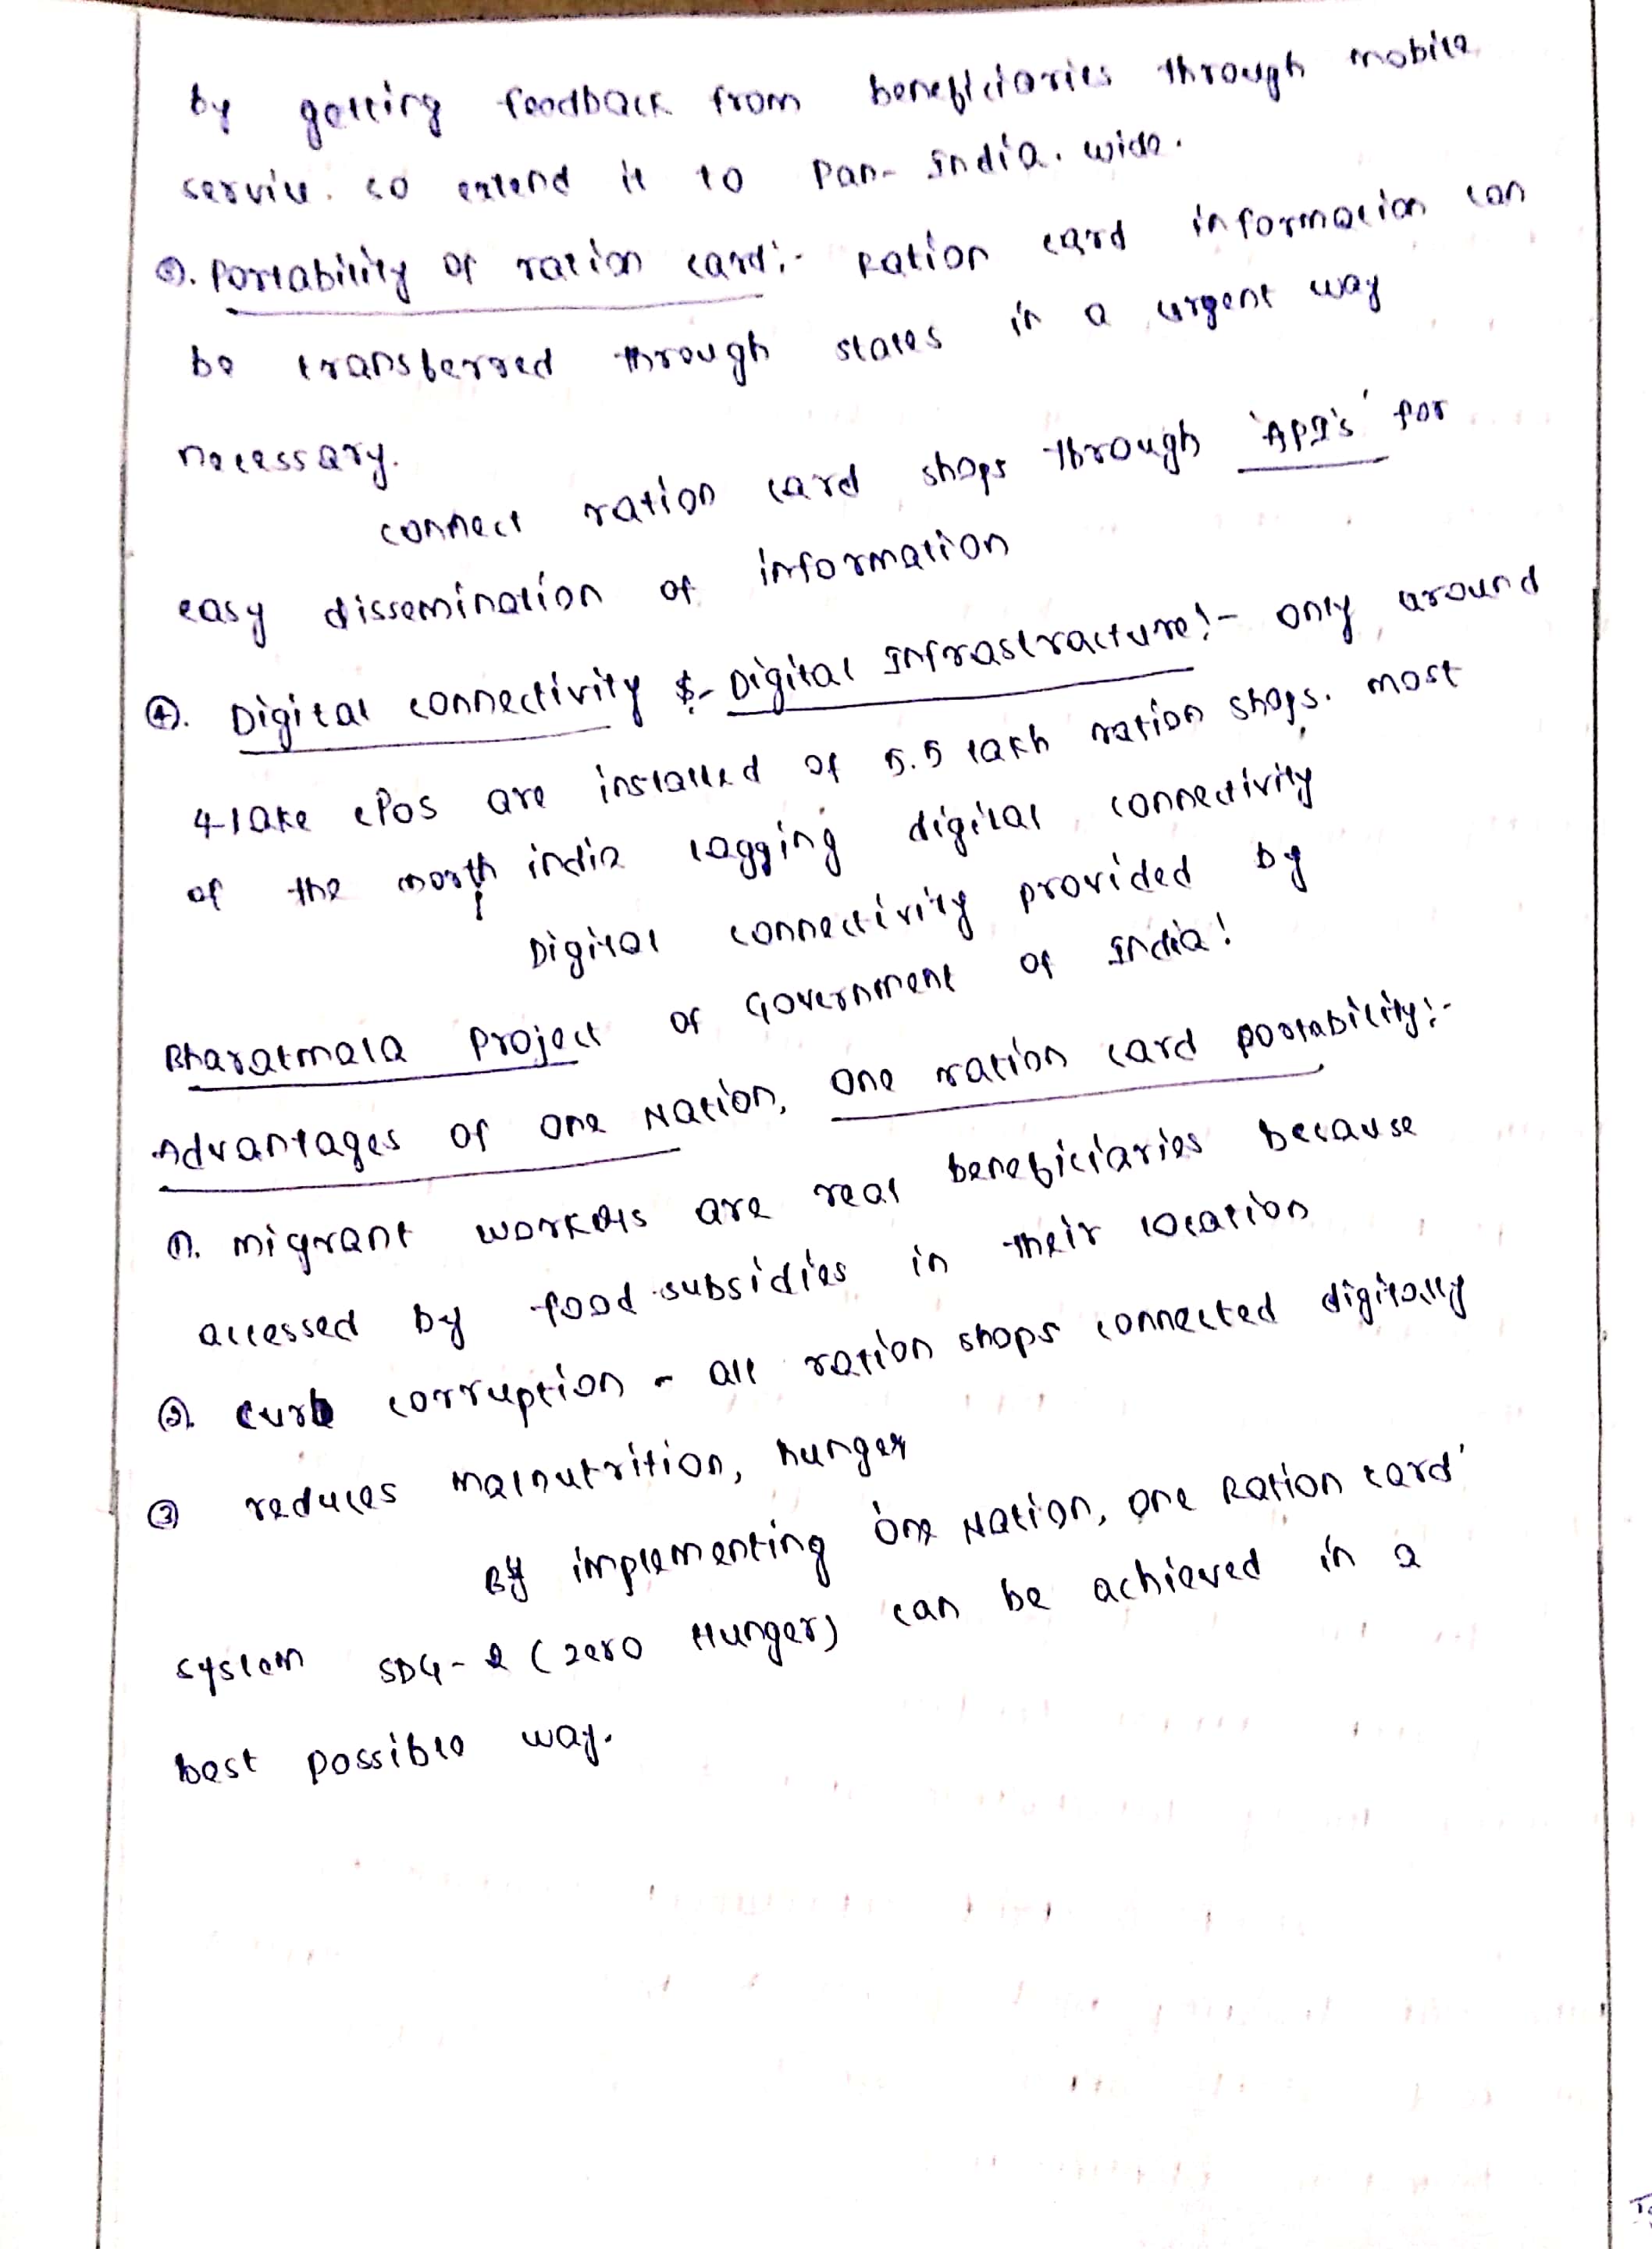 by getting feedback from beneficiaries through mobile
service. so extend it to Pan- India. wide.
③. Portability of ration card:- Ration card information can
be transferred through states in a urgent way
necessary.
connect ration card shops through 'API's' for
easy dissemination of information
④. Digital connectivity & Digital Infrastracture:- only around
4-lake ePos are installed of 5.5 lakh ration shops. most
of the north india lagging digital connectivity
Digital connectivity provided by
Bharatmala Project of Government of India!
Advantages of One Nation, One ration card portability:-
①. migrant workers are real beneficiaries because
accessed by food subsidies in their location
②. curb corruption - all ration shops connected digitally
③ reduces malnutrition, hunger
By implementing 'One Nation, One Ration card'
system SDG-2 (zero Hunger) can be achieved in a
best possible way.